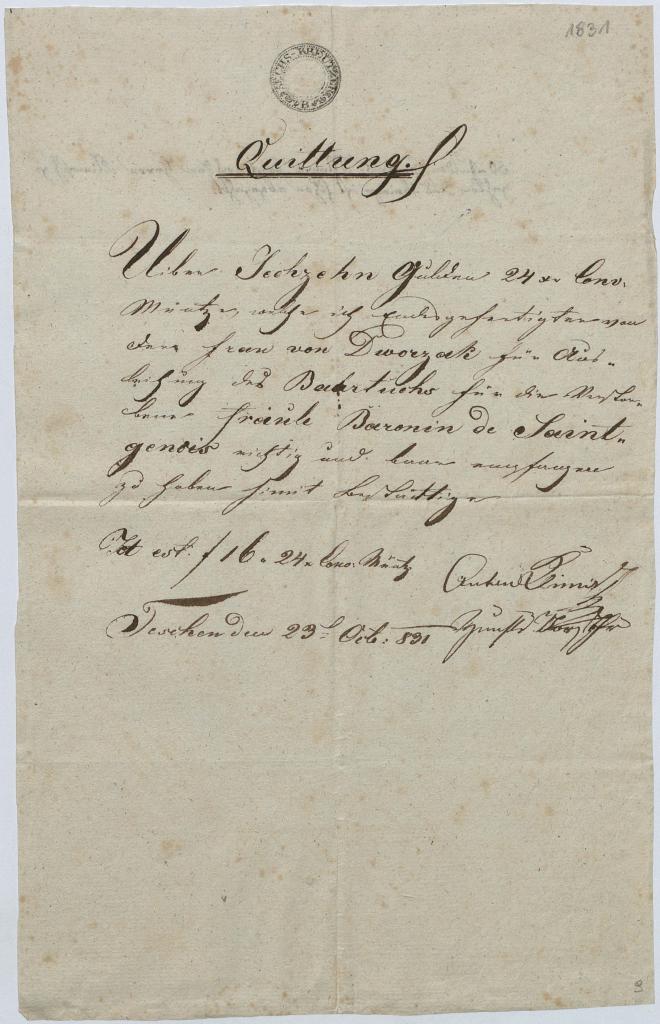 1831
SECHS-KREUTZER
Quittung.
Uiber Sechzehn Gulden 24 xr Conv.
Müntze, welche ich Endesgefertigter von
der Frau von Dworzak für Aus-
leihung des Bahrtuchs für die Verstor-
bene Fräule Baronin de Saint-
genois richtig und baar empfangen
zu haben hiemit bestättige
Id est f 16. 24 x Conv: Müntz
Anton
Teschen den 23t Octb: 831
Zunft Vorsteher